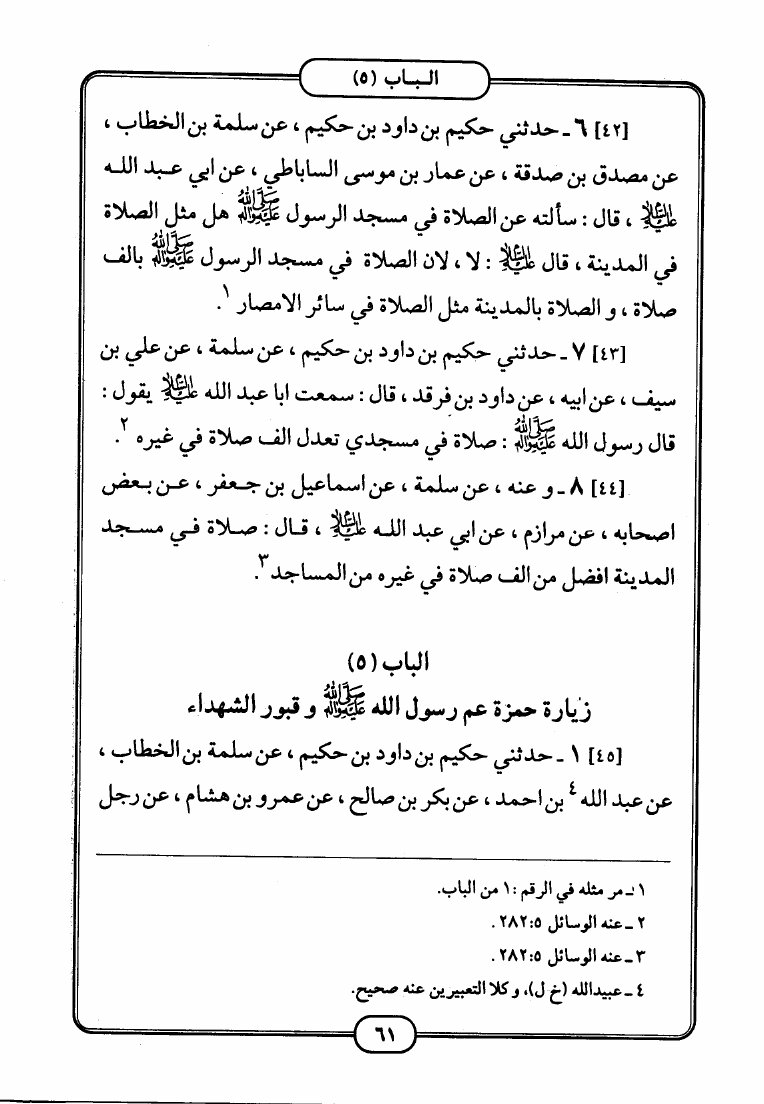 البـاب (٥)
[٤٢] ٦ ـ حدثني حكيم بن داود بن حكيم ، عن سلمة بن الخطاب ،
عن مصدق بن صدقة ، عن عمار بن موسى الساباطي ، عن ابي عبد اللـه
عليه السلام ، قال : سألته عن الصلاة في مسجد الرسول صلى الله عليه وآله هل مثل الصلاة
في المدينة ، قال عليه السلام : لا ، لان الصلاة في مسجد الرسول صلى الله عليه وآله بالف
صلاة ، و الصلاة بالمدينة مثل الصلاة في سائر الامصار ١.
[٤٣] ٧ ـ حدثني حكيم بن داود بن حكيم ، عن سلمة ، عن علي بن
سيف ، عن ابيه ، عن داود بن فرقد ، قال : سمعت ابا عبد الله عليه السلام يقول :
قال رسول الله صلى الله عليه وآله : صلاة في مسجدي تعدل الف صلاة في غيره ٢.
[٤٤] ٨ ـ و عنه ، عن سلمة ، عن اسماعيل بن جـعفر ، عـن بـعض
اصحابه ، عن مرازم ، عن ابي عبد اللـه عليه السلام ، قـال : صـلاة فـي مسـجد
المدينة افضل من الف صلاة في غيره من المساجد ٣.
الباب (٥)
زيارة حمزة عم رسول الله صلى الله عليه وآله و قبور الشهداء
[٤٥] ١ ـ حدثني حكيم بن داود بن حكيم ، عن سلمة بن الخطاب ،
عن عبد الله ٤ بن احمد ، عن بكر بن صالح ، عن عمرو بن هشام ، عن رجل
١ ـ مر مثله في الرقم : ١ من الباب.
٢ ـ عنه الوسائل ٥: ٢٨٢ .
٣ ـ عنه الوسائل ٥: ٢٨٢ .
٤ ـ عبيدالله (خ ل)، و كلا التعبيرين عنه صحيح.
٦١